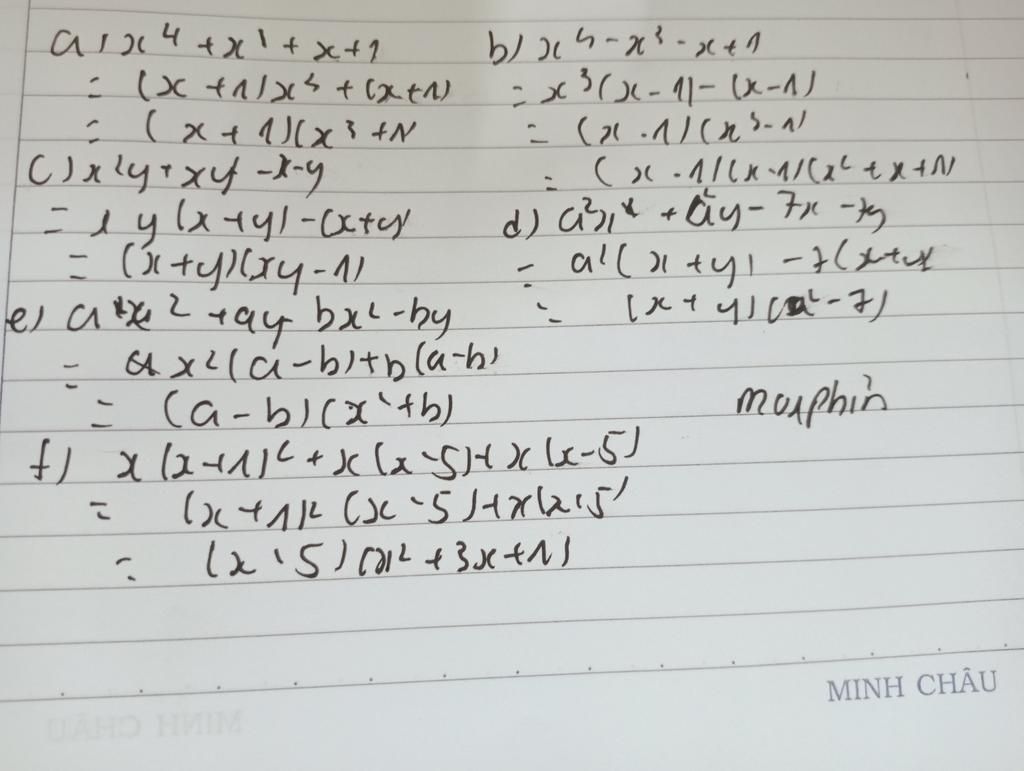 a) x⁴ + x³ + x + 1
= (x + 1)x³ + (x+1)
= (x + 1)(x³ + 1)
b) x⁴ - x³ - x + 1
= x³(x - 1) - (x - 1)
= (x - 1)(x³ - 1)
= (x - 1)(x - 1)(x² + x + 1)
c) x²y + xy² - x - y
= xy(x + y) - (x + y)
= (x + y)(xy - 1)
d) a²x + a²y - 7x - 7y
= a²(x + y) - 7(x + y)
= (x + y)(a² - 7)
e) ax² + ay bx² - by
= x²(a - b) + b(a - b)
= (a - b)(x² + b)
morphin
f) x(x + 1)² + x(x - 5) + x(x - 5)
= (x + 1)²(x - 5) + x(x - 5)
= (x - 5)(x² + 3x + 1)
MINH CHÂU